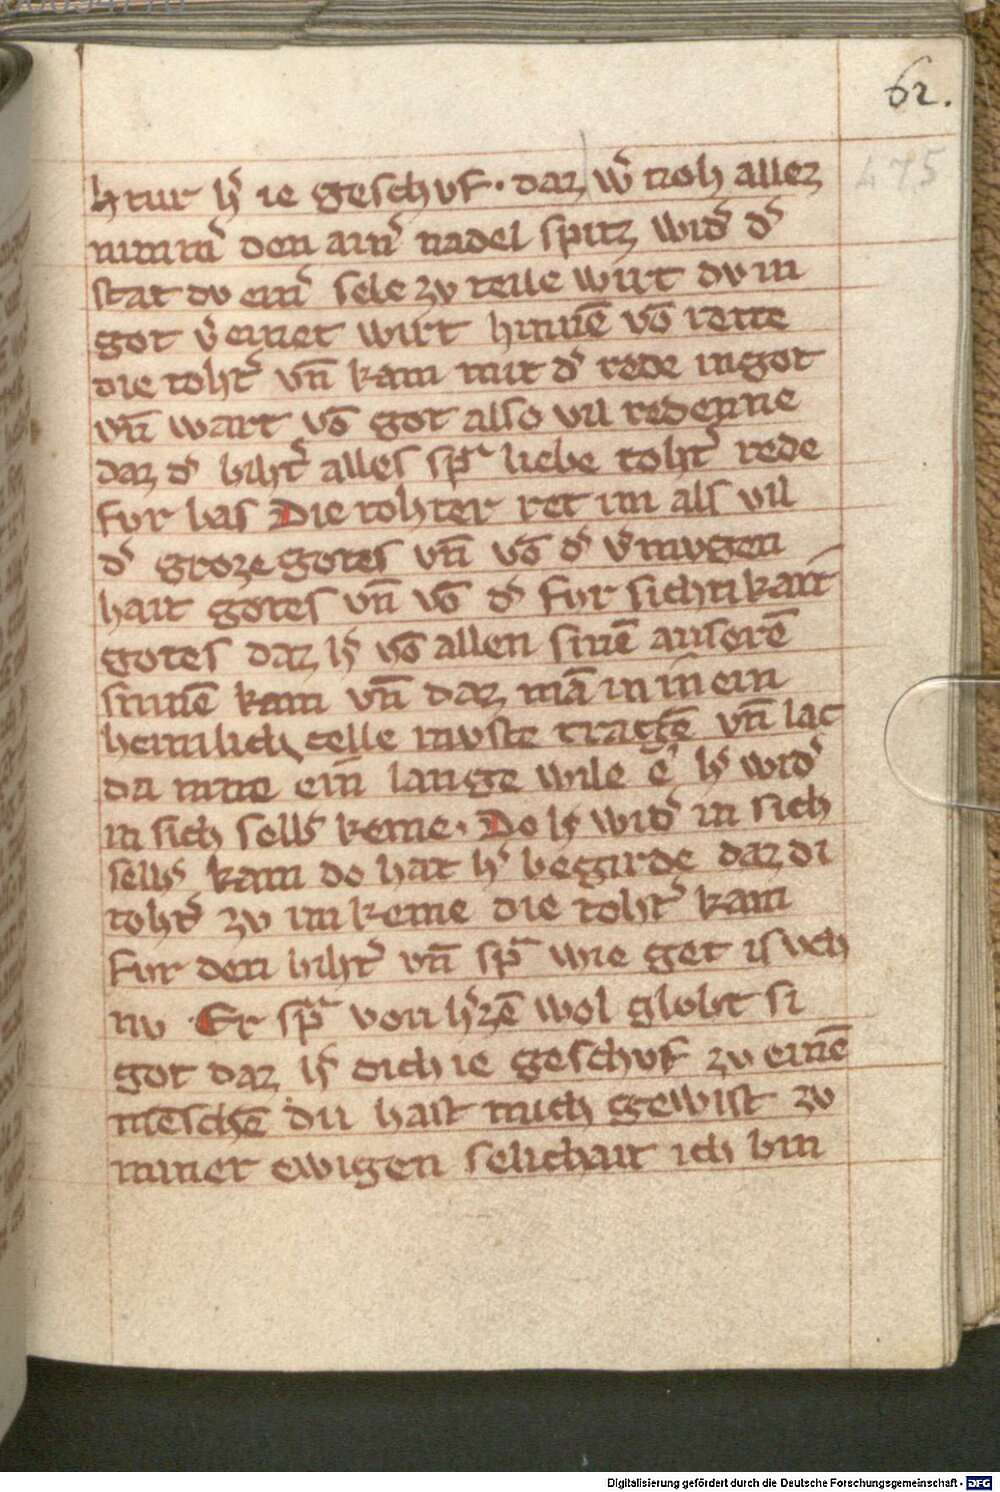 62.
475
htur hs̾ ie geschuf · daz w̾ noh allez
minin̾ den ain̾ nadel spitz wid̾ d̾
stat dv ein̾ sele zv teile wirt dv in
got v̾einet wirt hinnē vō rette
die toht̾ vn̄ kam mit d̾ rede in got
vn̄ wart vō got also vil redenne
daz d̾ biht̾ alles sp̾ liebe toht̾ rede
fur bas Die tohter ret im als vil
d̾ groze gotes vn̄ vō d̾ v̾mvgen
hait gotes vn̄ vō d̾ fur sichtikait
gotes daz h̾ vō allen sinē auserē
sinnē kam vn̄ daz mā in in ein
heimlich celle mvste tragē vn̄ lac
da inne ein̄ lange wile e h̾ wid̾
in sich selb̾ keme · Do h̾ wid̾ in sich
selb̾ kam do hat h̾ begirde daz di
toht̾ zv im keme die toht̾ kam
fur den biht̾ vn̄ sp̾ wie get is vch
nv · Er sp̾ von h̾zē wol globt si
got daz h̾ dich ie geschuf zv einē
mēschē du hast mich gewist zv
miner ewigen selichait ich bin
Digitalisierung gefördert durch die Deutsche Forschungsgemeinschaft - DFG